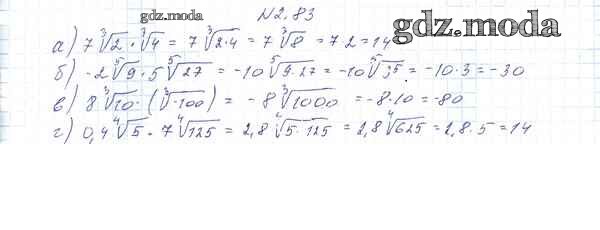 gdz.moda
№2.83
gdz.moda
а) 7∛2 · ∛4 = 7∛2·4 = 7∛8 = 7·2 = 14
б) -2⁵√9 · 5⁵√27 = -10⁵√9·27 = -10⁵√3⁵ = -10·3 = -30
в) 8∛10 · (∛-100) = -8∛1000 = -8·10 = -80
г) 0,4⁴√5 · 7⁴√125 = 2,8⁴√5·125 = 2,8⁴√625 = 2,8·5 = 14